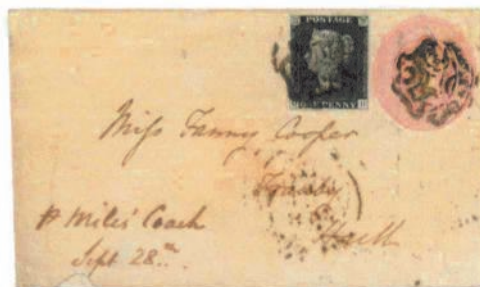 POSTAGE
ONE PENNY
Miss Fanny Cooper
Hull
p Miles' Coach
Sept 28th